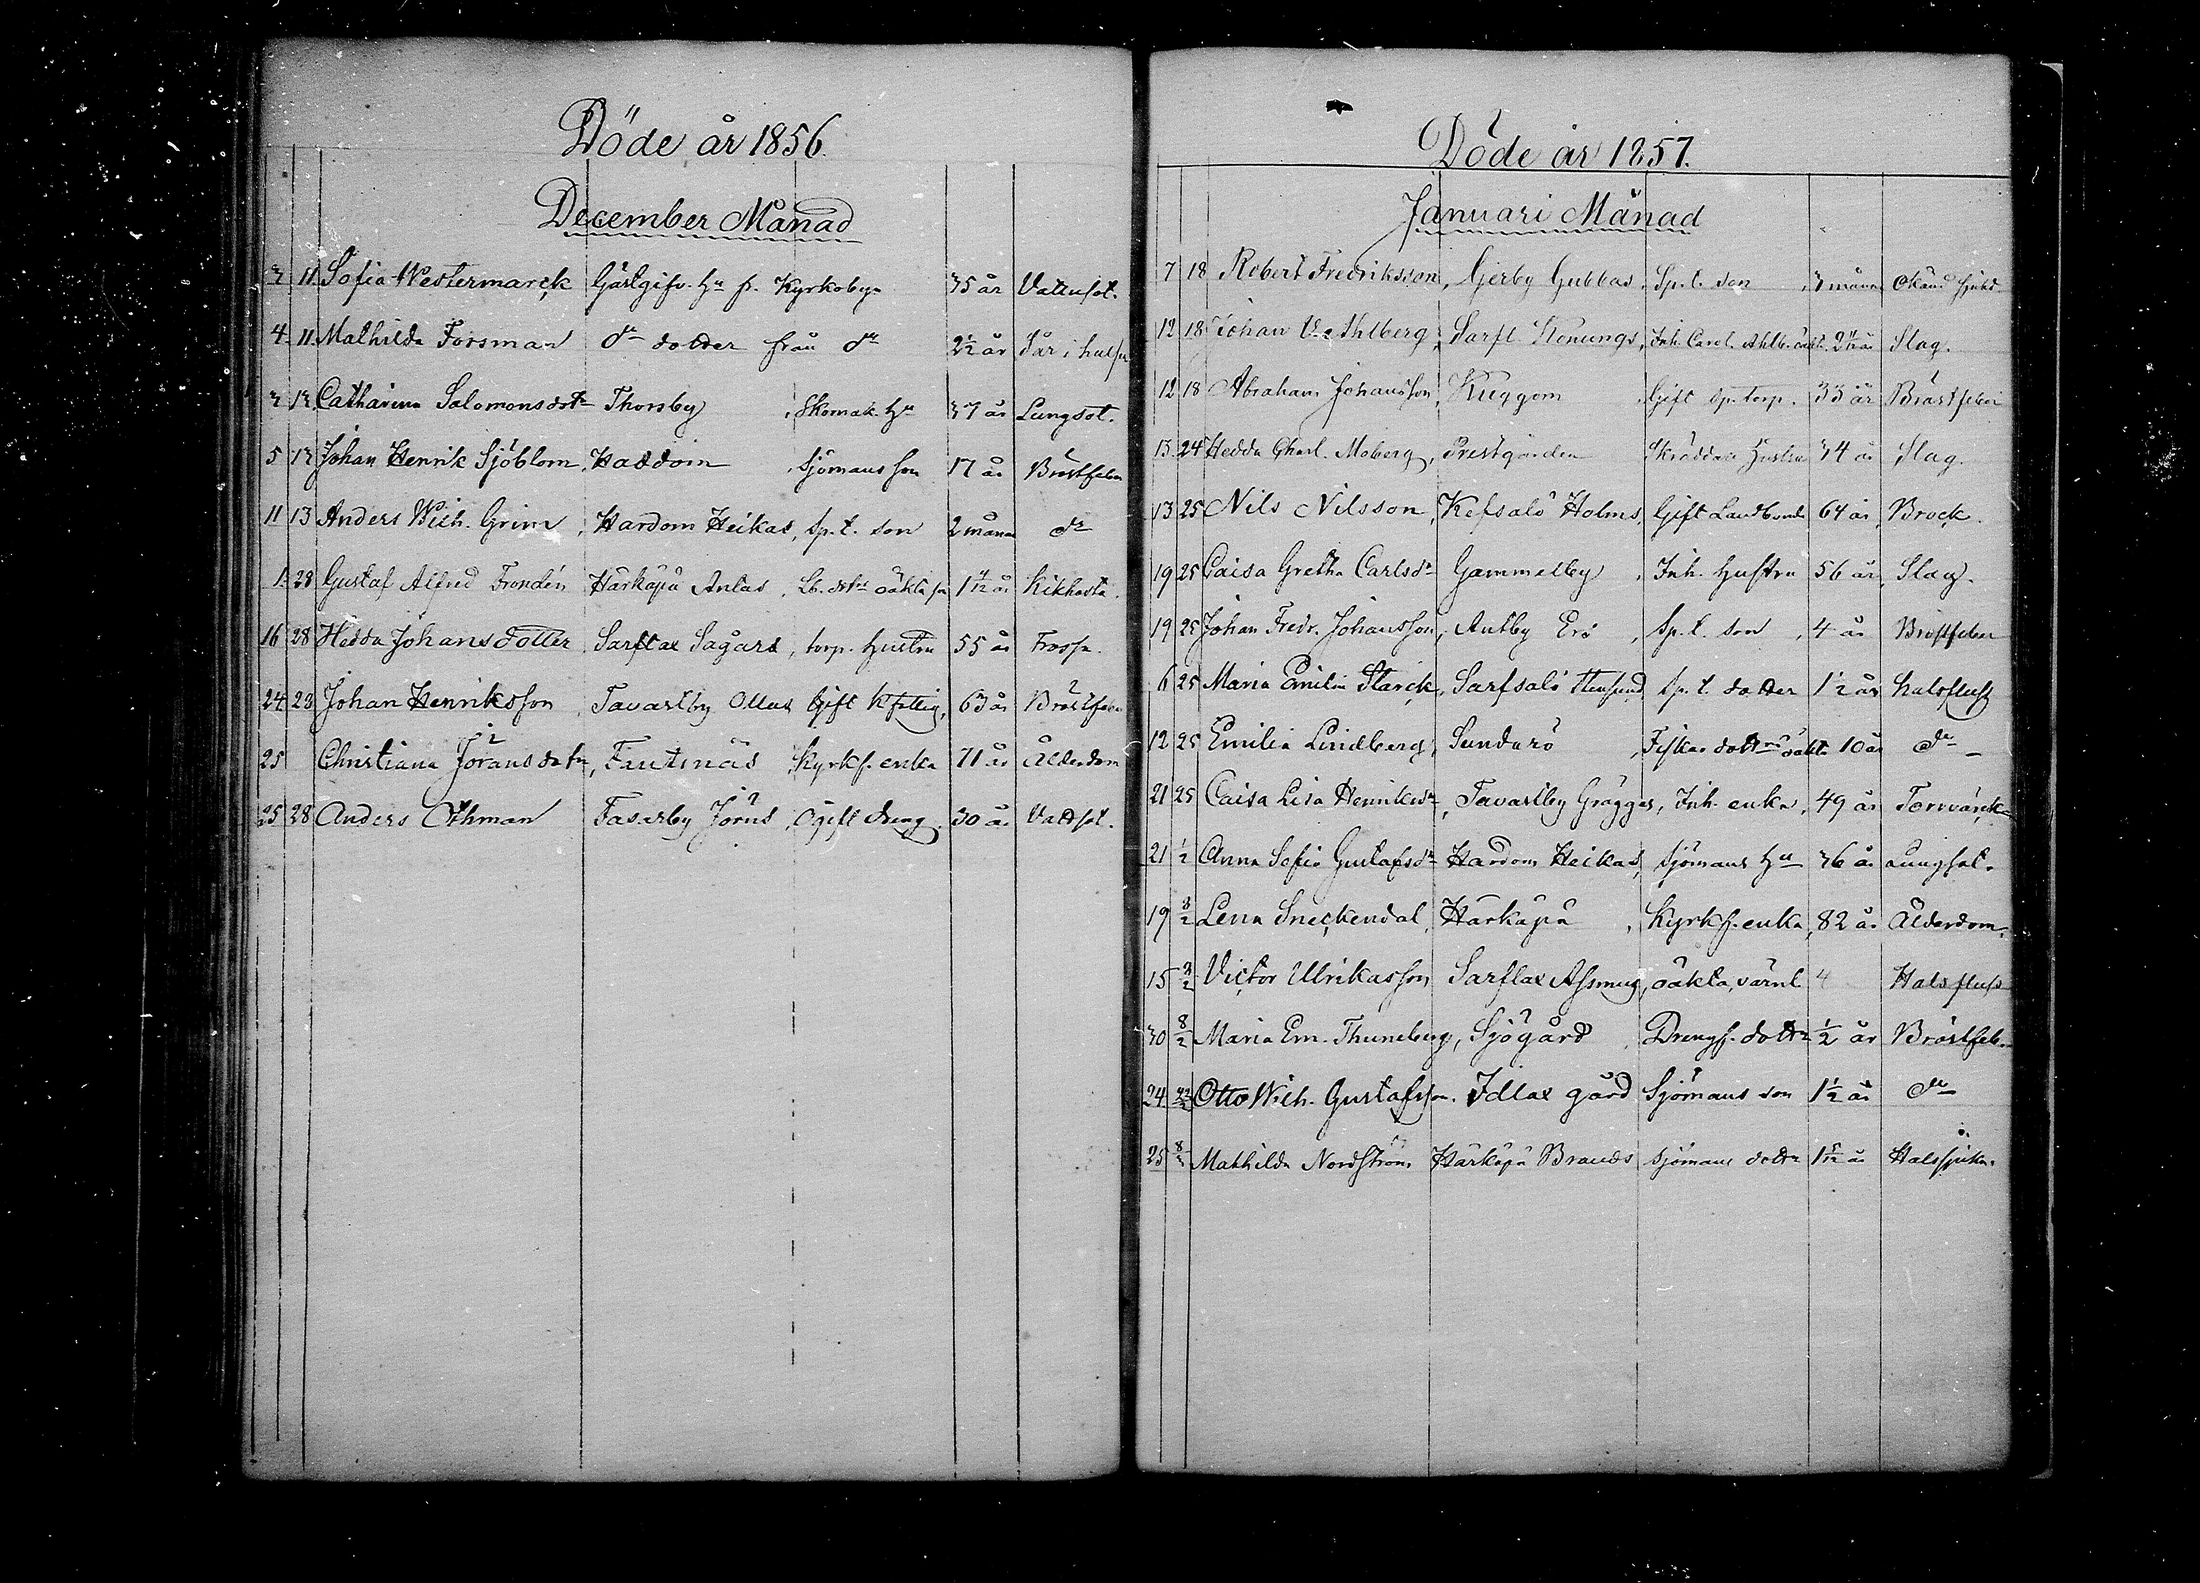 Döde år 1856.
December Månad
3 11 Sofia Westermarck Gästgifv. Hu fr. Kyrkoby 35 år Vattusot.
4 11 Mathilda Forsman do dotter från do 2½ år Sår i halsen
3 13 Catharina Salomonsdotr Thorsby, Skomak. Hu 37 år Lungsot.
5 13 Johan Henrik Sjöblom, Haddom, Sjömans son 17 år Bröstfeber
11 13 Anders Wilh. Grim, Hardom Heikas, Sp. t. son 2 mån do
1 28 Gustaf Alfred Frondén Härkäpä Antas, oäkta 1 år Kikhosta.
16 28 Hedda Johansdotter Sarflax Sagars, torp. hustru 55 år Frossa.
24 28 Johan Henriksson Tavastby Ollas Gift Kfattig, 63 år Bröstfeber
25 Christiana Jöransdotr, Fantsnäs Kyrkf. enka 71 år Ålderdom
25 28 Anders Öhman Fasarby Jörns, Ogift dreng. 30 år Vattsot.
Döde år 1857.
Januari Månad
7 18 Robert Fredriksson, Gerby Gubbas, Sp. t. son, 3 mån Okänd sjukd
12 18 Johan Ahlberg, Sarfl. Konungs, Inh. Carol. Ahlb. oäkt. 2 år Slag.
12 18 Abraham Johansson, Kuggom, Gift sp. torp. 33 år Bröstfeber
13 24 Hedda Charl. Moberg, Prestgården Skräddar Hustru 34 år Slag.
13 25 Nils Nilsson, Kefsalö Holms, Gift Landbonde 64 år, Brock.
19 25 Caisa Gretha Carlsdr Gammelby, Inh. Hustru 56 år, Slag.
19 25 Johan Fredr. Johansson, Antby Ers, Sp. t. son, 4 år Bröstfeber
6 25 Maria Emilia Starck, Sarfsalö Stensund, Sp. t. dotter 1½ år halsfluss
12 25 Emilia Lindberg, Sundarö, Fiskar dottrs oäkt. 10 år do
21 25 Caisa Lisa Henriksdr, Tavastby Gräggas, Inh. enka, 49 år Torrvärk
21 ½ Anna Sofia Gustafsdr Hardom Heikas, Sjömans Hu 36 år Lungsot.
19 8/2 Lena Sneckendal, Härkäpä, Kyrkf. enka, 82 år Ålderdom.
15 3/2 Victor Ulrikasson Sarflax Assmus, oäkta, värnl. 4 Halsfluss
30 8/2 Maria Em. Thuneberg, Sjögård, Drengs. dottr ½ år Bröstfeb.
24 Otto Wilh. Gustafsson. Idlax gård Sjömans son 1½ år do
25 8/2 Mathilda Nordström Härkäpä Brands Sjömans dottr 1 5/12 år Halssjuka.